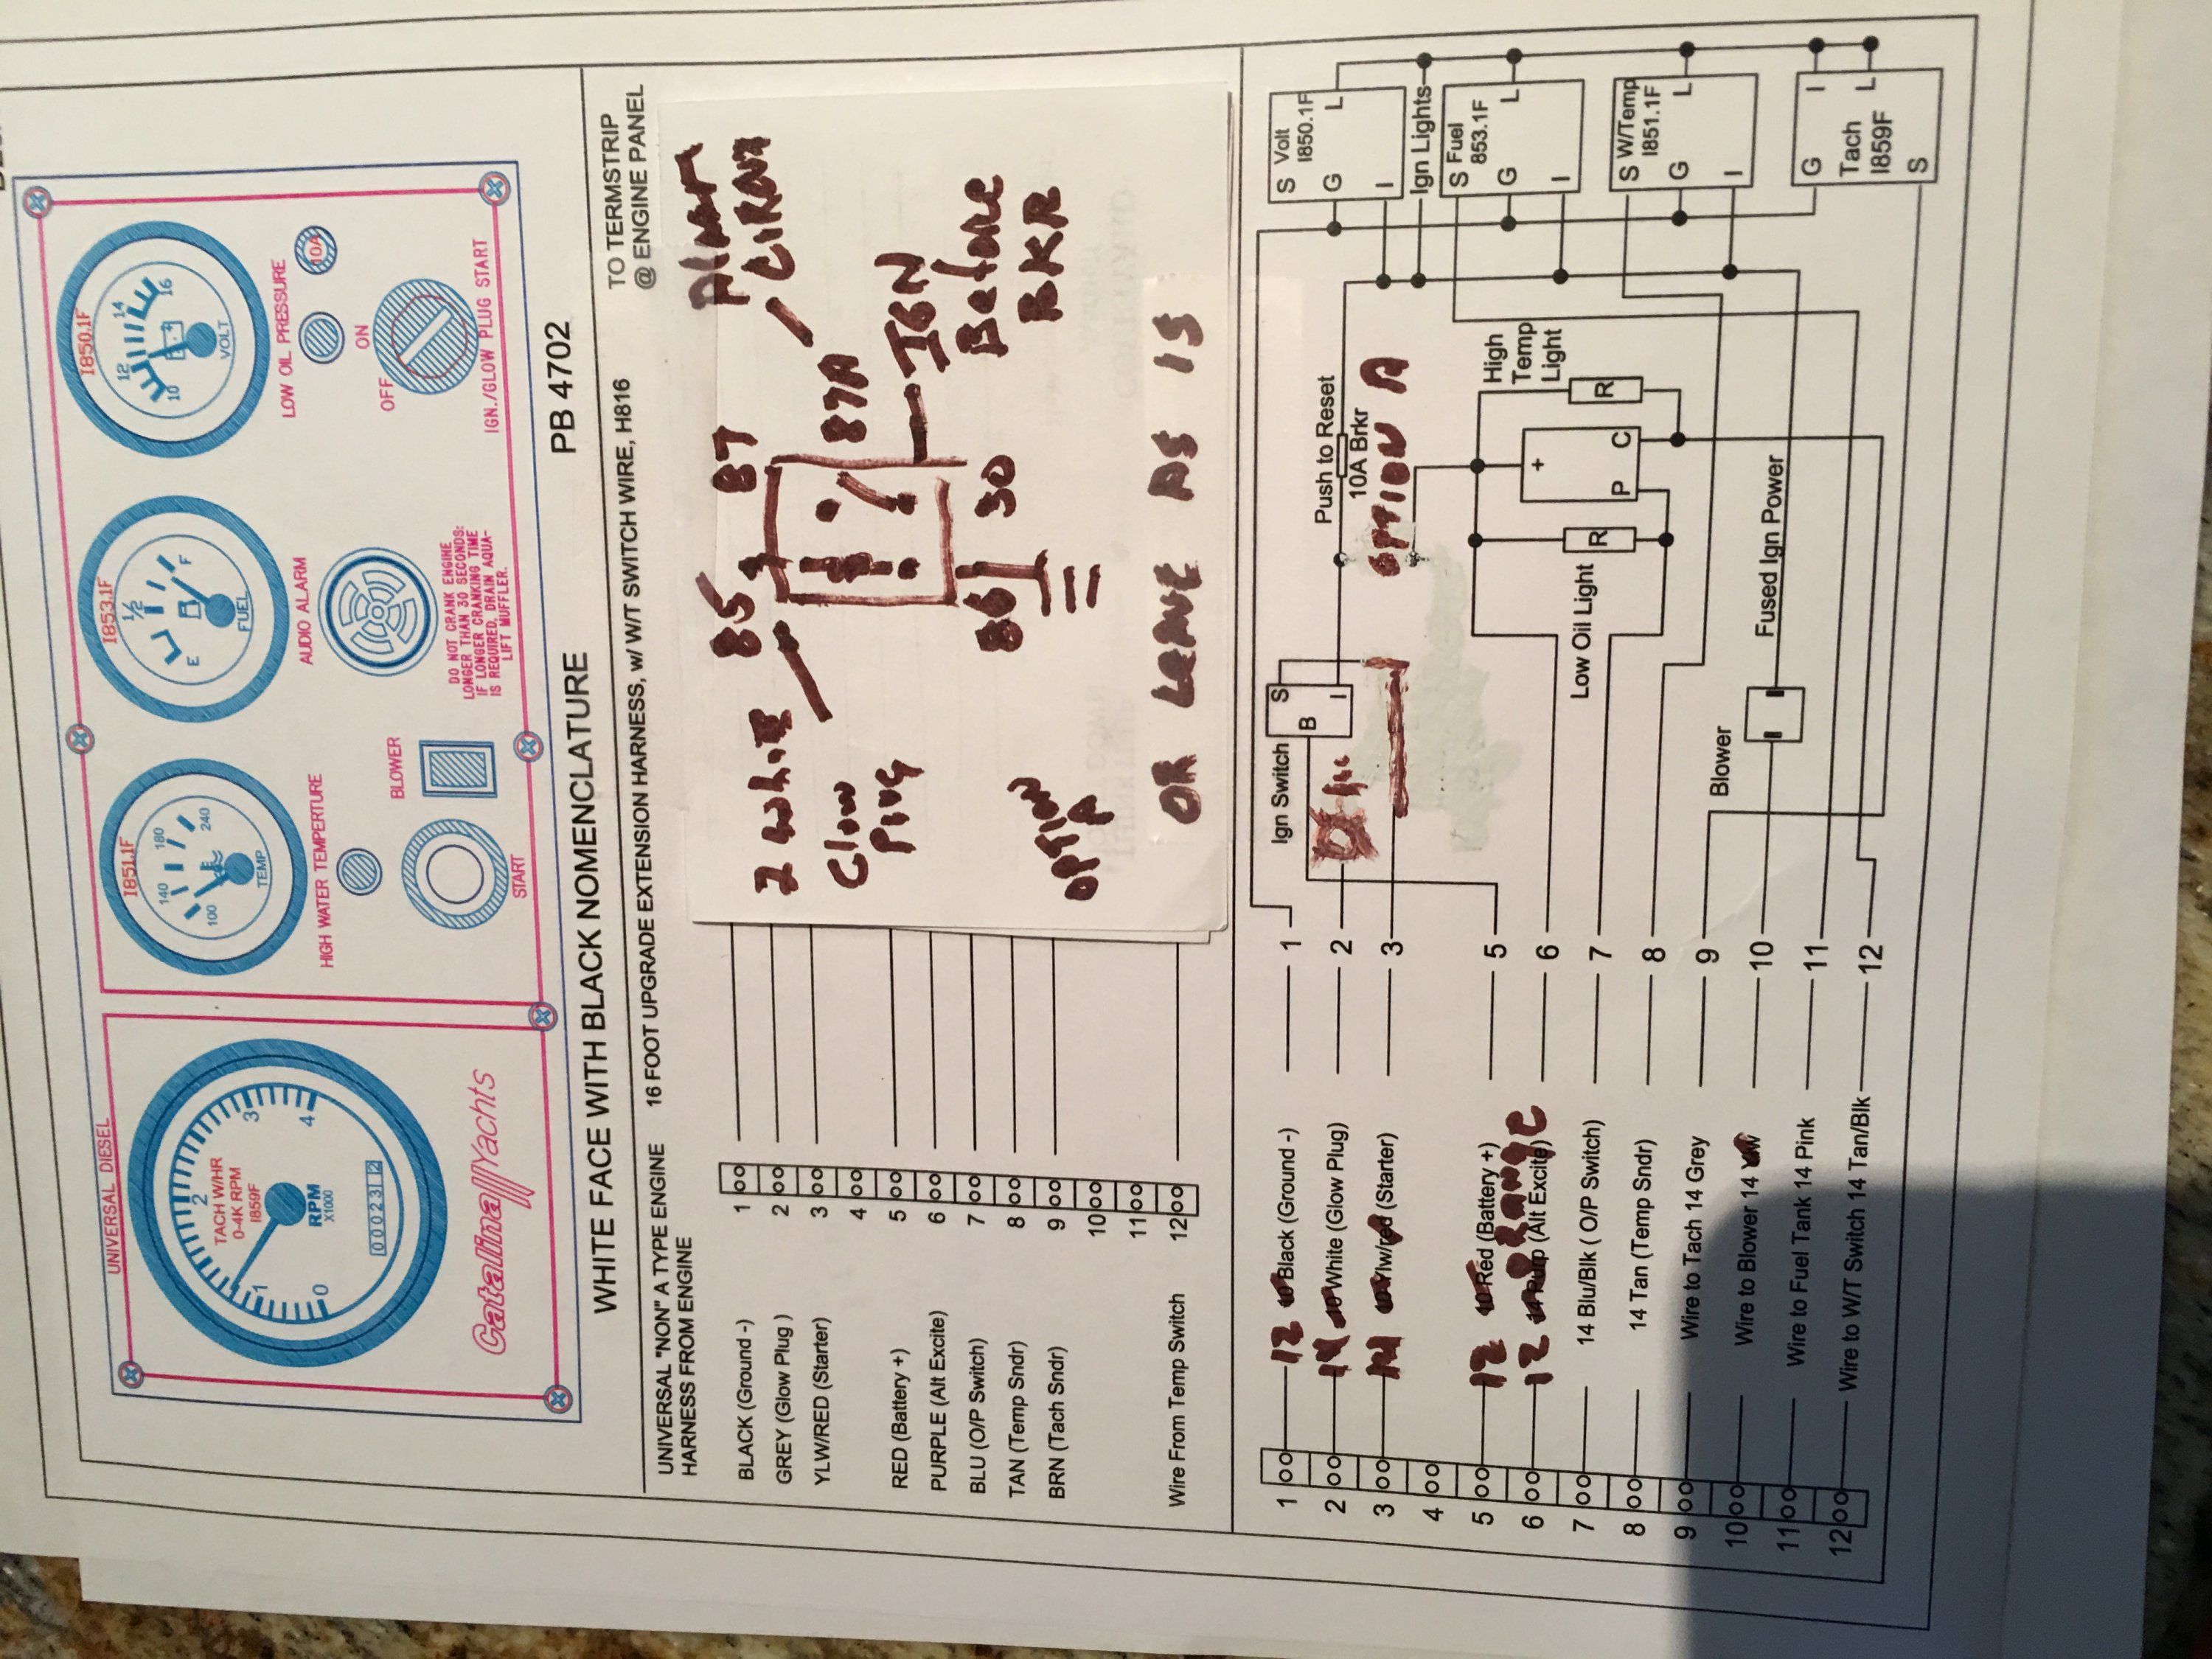 UNIVERSAL DIESEL
TACH W/HR
0-4K RPM
I859F
0
1
2
3
4
RPM
X1000
Catalina Yachts
I851.1F
100
140
180
240
TEMP
HIGH WATER TEMPERTURE
START
BLOWER
I853.1F
E
1/2
F
FUEL
AUDIO ALARM
DO NOT CRANK ENGINE
LONGER THAN 30 SECONDS:
IF LONGER CRANKING TIME
IS REQUIRED, DRAIN AQUA-
LIFT MUFFLER.
I850.1F
10
12
14
16
VOLT
LOW OIL PRESSURE
10A
OFF
ON
IGN./GLOW PLUG START
WHITE FACE WITH BLACK NOMENCLATURE
PB 4702
UNIVERSAL "NON" A TYPE ENGINE
HARNESS FROM ENGINE
16 FOOT UPGRADE EXTENSION HARNESS, w/ W/T SWITCH WIRE, H816
TO TERMSTRIP
@ ENGINE PANEL
BLACK (Ground -)
GREY (Glow Plug )
YLW/RED (Starter)
RED (Battery +)
PURPLE (Alt Excite)
BLU (O/P Switch)
TAN (Temp Sndr)
BRN (Tach Sndr)
Wire From Temp Switch
1
2
3
4
5
6
7
8
9
10
11
12
2 White
Glow
Plug
85
87
87A
86
30
Alarm
CIRCUIT
IGN
Before
BKR
OPTION
A
OR LEAVE AS IS
1
2
3
4
5
6
7
8
9
10
11
12
12 10 Black (Ground -)
14 10 White (Glow Plug)
14 10 Ylw/red (Starter)
12 10 Red (Battery +)
12 ORANGE 14 Purp (Alt Excite)
14 Blu/Blk ( O/P Switch)
14 Tan (Temp Sndr)
Wire to Tach 14 Grey
Wire to Blower 14
Wire to Fuel Tank 14 Pink
Wire to W/T Switch 14 Tan/Blk
1
2
3
5
6
7
8
9
10
11
12
Ign Switch
B
S
I
Push to Reset
10A Brkr
OPTION A
Low Oil Light
R
+
P
C
High
Temp
Light
R
Blower
Fused Ign Power
S Volt
I850.1F
G
L
I
Ign Lights
S Fuel
853.1F
G
L
I
S W/Temp
I851.1F
G
L
I
G
I
Tach
L
I859F
S